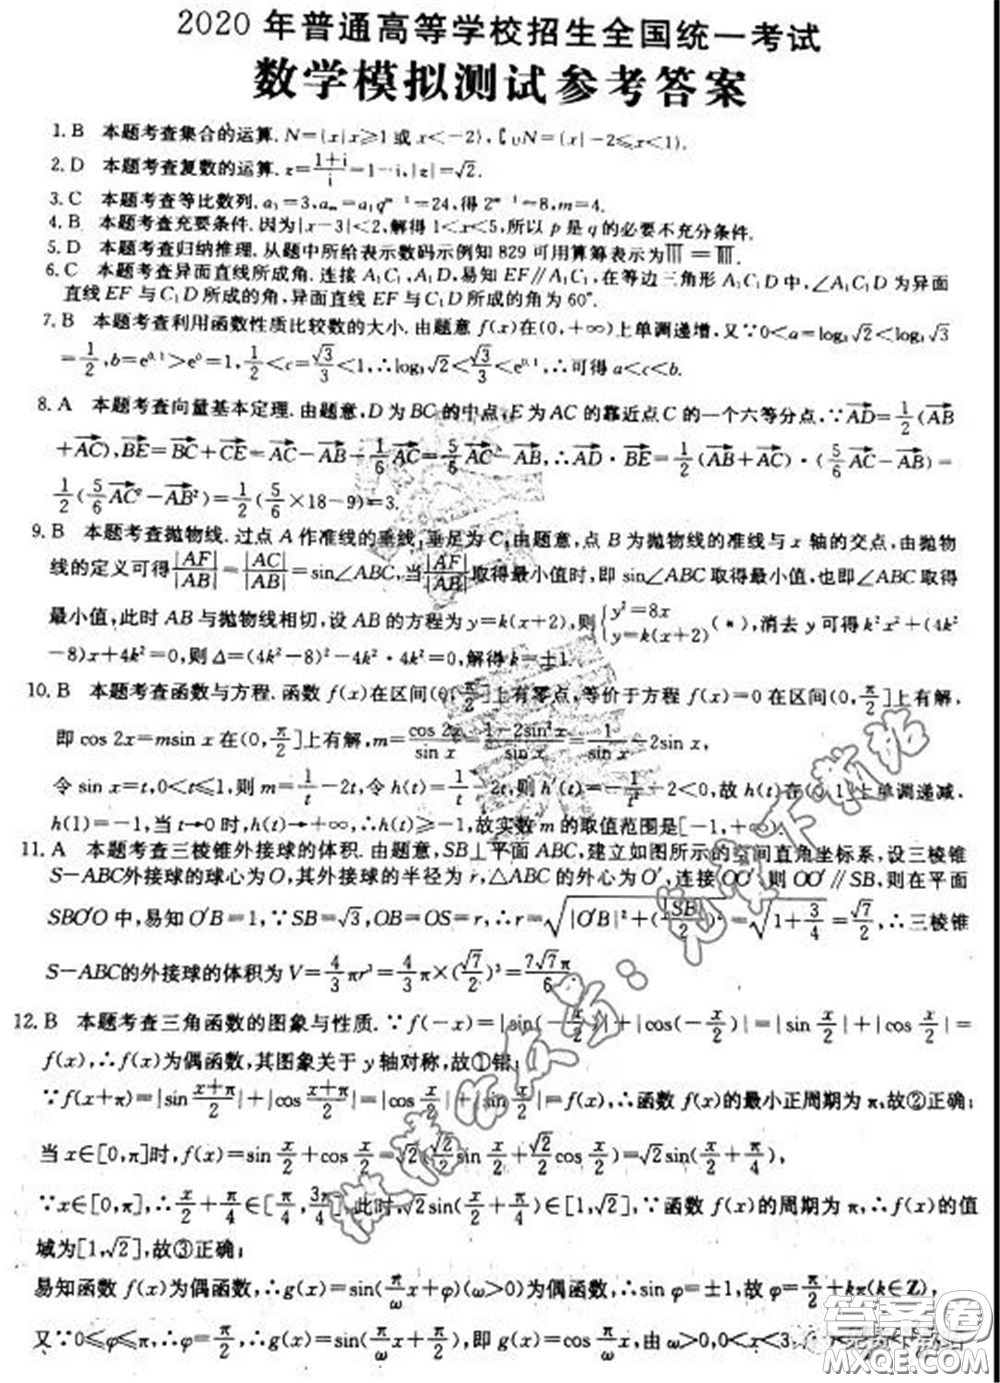 2020 年普通高等学校招生全国统一考试
数学模拟测试参考答案
1. B 本题考查集合的运算. N={x|x⩾1 或 x<-2}, ∁UN={x|-2⩽x<1}.
2. D 本题考查复数的运算. z=(1+i)/i=1-i, |z|=√2.
3. C 本题考查等比数列. a₁=3, aₘ=a₁qᵐ⁻¹=24, 得 2ᵐ⁻¹=8, m=4.
4. B 本题考查充要条件. 因为|x-3|<2, 解得 1<x<5, 所以 p 是 q 的必要不充分条件.
5. D 本题考查归纳推理. 从题中所给表示数码示例知 829 可用算筹表示为
6. C 本题考查异面直线所成角. 连接 A₁C₁, A₁D, 易知 EF∥A₁C₁, 在等边三角形 A₁C₁D 中, ∠A₁C₁D 为异面
直线 EF 与 C₁D 所成的角, 异面直线 EF 与 C₁D 所成的角为 60°.
7. B 本题考查利用函数性质比较数的大小. 由题意 f(x)在(0,+∞)上单调递增, 又∵0<a=log₃√2<log₃√3
=1/2, b=e^0.1>e⁰=1, 1/2<c=√3/2<1, ∴log₃√2<√3/2<e^0.1, ∴可得 a<c<b.
8. A 本题考查向量基本定理. 由题意, D 为 BC 的中点, E 为 AC 的靠近点 C 的一个六等分点, ∵AD=1/2(AB
+AC), BE=BC+CE=AC-AB-1/6AC=5/6AC-AB, ∴AD·BE=1/2(AB+AC)·(5/6AC-AB)=
1/2(5/6AC²-AB²)=1/2(5/6×18-9)=3.
9. B 本题考查抛物线. 过点 A 作准线的垂线, 垂足为 C, 由题意, 点 B 为抛物线的准线与 x 轴的交点, 由抛物
线的定义可得|AF|/|AB|=|AC|/|AB|=sin∠ABC, 当|AF|/|AB|取得最小值时, 即 sin∠ABC 取得最小值, 也即∠ABC取得
最小值, 此时 AB 与抛物线相切, 设 AB 的方程为 y=k(x+2), 则{y²=8x, y=k(x+2)(*), 消去 y 可得 k²x²+(4k²
-8)x+4k²=0, 则 Δ=(4k²-8)²-4k²·4k²=0, 解得 k=±1.
10. B 本题考查函数与方程. 函数 f(x)在区间(0,π/2]上有零点, 等价于方程 f(x)=0 在区间(0,π/2]上有解,
即 cos 2x=msin x 在(0,π/2]上有解, m=cos 2x/sin x=(1-2sin²x)/sin x=1/sin x-2sin x,
令 sin x=t, 0<t⩽1, 则 m=1/t-2t, 令 h(t)=1/t-2t, 则 h′(t)=-1/t²-2<0, 故 h(t)在(0,1]上单调递减.
h(1)=-1, 当 t→0 时, h(t)→+∞, ∴h(t)⩾-1, 故实数 m 的取值范围是[-1,+∞).
11. A 本题考查三棱锥外接球的体积. 由题意, SB⊥平面 ABC, 建立如图所示的空间直角坐标系, 设三棱锥
S-ABC外接球的球心为 O, 其外接球的半径为 r, △ABC 的外心为 O′, 连接 OO′, 则 OO′∥SB, 则在平面
SBO′O 中, 易知 O′B=1, ∵SB=√3, OB=OS=r, ∴r=√(|O′B|²+(|SB|/2)²)=√(1+3/4)=√7/2, ∴三棱锥
S-ABC的外接球的体积为 V=4/3πr³=4/3π×(√7/2)³=7√7π/6
12. B 本题考查三角函数的图象与性质. ∵f(-x)=|sin(-x/2)|+|cos(-x/2)|=|sin x/2|+|cos x/2|=
f(x), ∴f(x)为偶函数, 其图象关于 y 轴对称, 故①错;
∵f(x+π)=|sin (x+π)/2|+|cos (x+π)/2|=|cos x/2|+|sin x/2|=f(x), ∴函数 f(x)的最小正周期为 π, 故②正确;
当 x∈[0,π]时, f(x)=sin x/2+cos x/2=√2(√2/2 sin x/2+√2/2 cos x/2)=√2sin(x/2+π/4),
∵x∈[0,π], ∴x/2+π/4∈[π/4,3π/4], 此时, √2sin(x/2+π/4)∈[1,√2], ∵函数 f(x)的周期为 π, ∴f(x)的值
域为[1,√2], 故③正确;
易知函数 f(x)为偶函数, ∴g(x)=sin(π/ω x+φ)(ω>0)为偶函数, ∴sin φ=±1, 故 φ=π/2+kπ(k∈Z),
又∵0⩽φ⩽π, ∴φ=π/2, ∴g(x)=sin(π/ω x+π/2), 即 g(x)=cos π/ω x, 由 ω>0, 0<x<3
答案卷
MXQE.COM